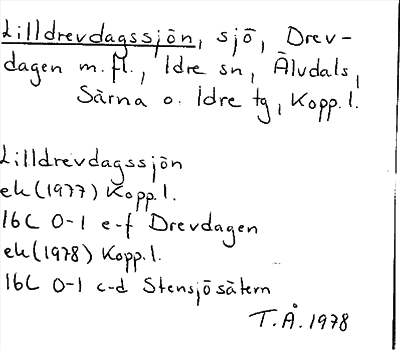 Lilldrevdagssjön, sjö, Drev-
dagen m.fl., Idre sn, Älvdals,
Särna o. Idre tg, Kopp.l.
Lilldrevdagssjön
ek(1977) Kopp.l.
16C 0-1 e-f Drevdagen
ek(1978) Kopp.l.
16C 0-1 c-d Stensjösätern
T.Å.1978